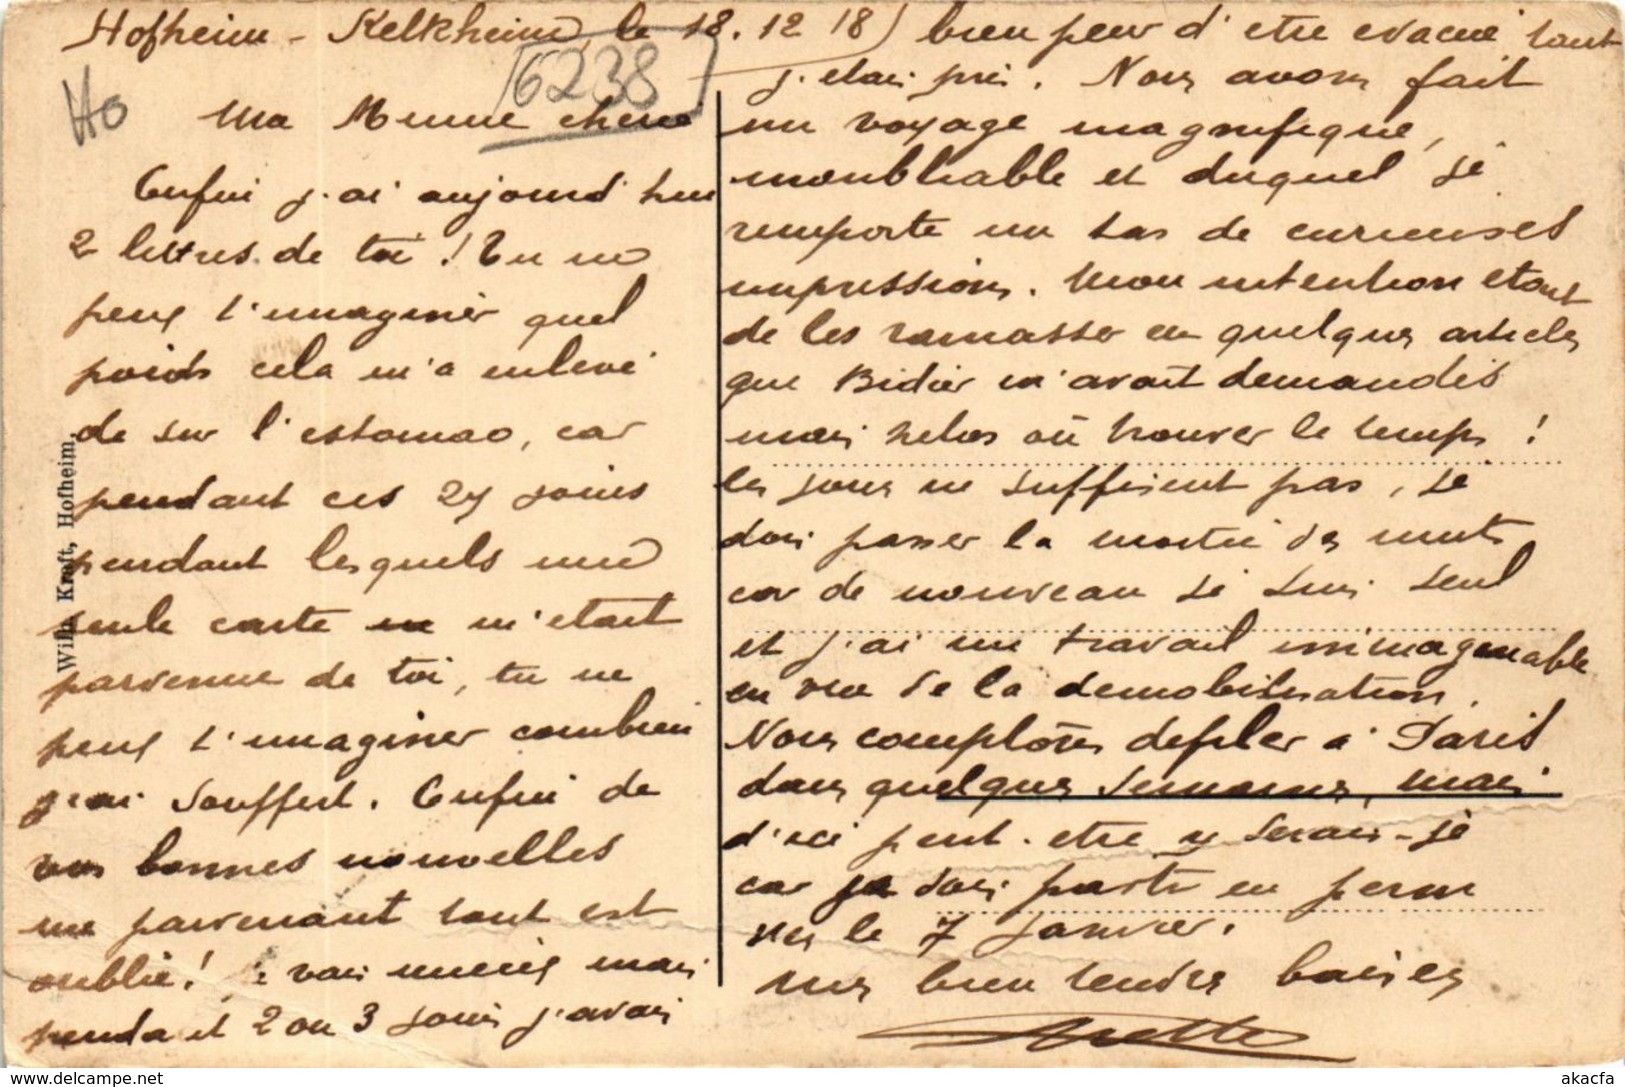 Hofheim - Kelkheim, le 18.12 18
6238
Ho
Ma Meme cherie
Enfin j.ai aujourd'hui
2 lettres de toi ! Tu ne
peux t'imaginer quel
poids cela m'a enlevé
de sur l'estomac, car
pendant ces 27 jours
pendant lesquels une
seule carte m'etait
parvenue de toi, tu ne
peux t'imaginer combien
j'ai souffert. Enfin de
vos bonnes nouvelles
me parvenant tout est
oublié! je vais mieux mais
pendant 2 ou 3 jours j'avais
bien peur d'etre evacué tant
j.etais pris. Nous avons fait
un voyage magnifique,
inoubliable et duquel je
remporte un tas de curieuses
impressions. Mon intention etant
de les ramasser en quelques articles
que Didier m'avait demandés
mais helas où trouver le temps !
les jours ne suffisent pas, je
dois passer la moitié des nuits
car de nouveau je suis seul
et j'ai un travail inimaginable
en vue de la demobilisation.
Nous comptons defiler à Paris
dans quelques semaines, mais
d'ici peut-etre y serai-je
car je dois partir en perm
vers le 7 Janvier.
Mes bien tendres baisers
Willh. Kraft, Hofheim.
akacfa